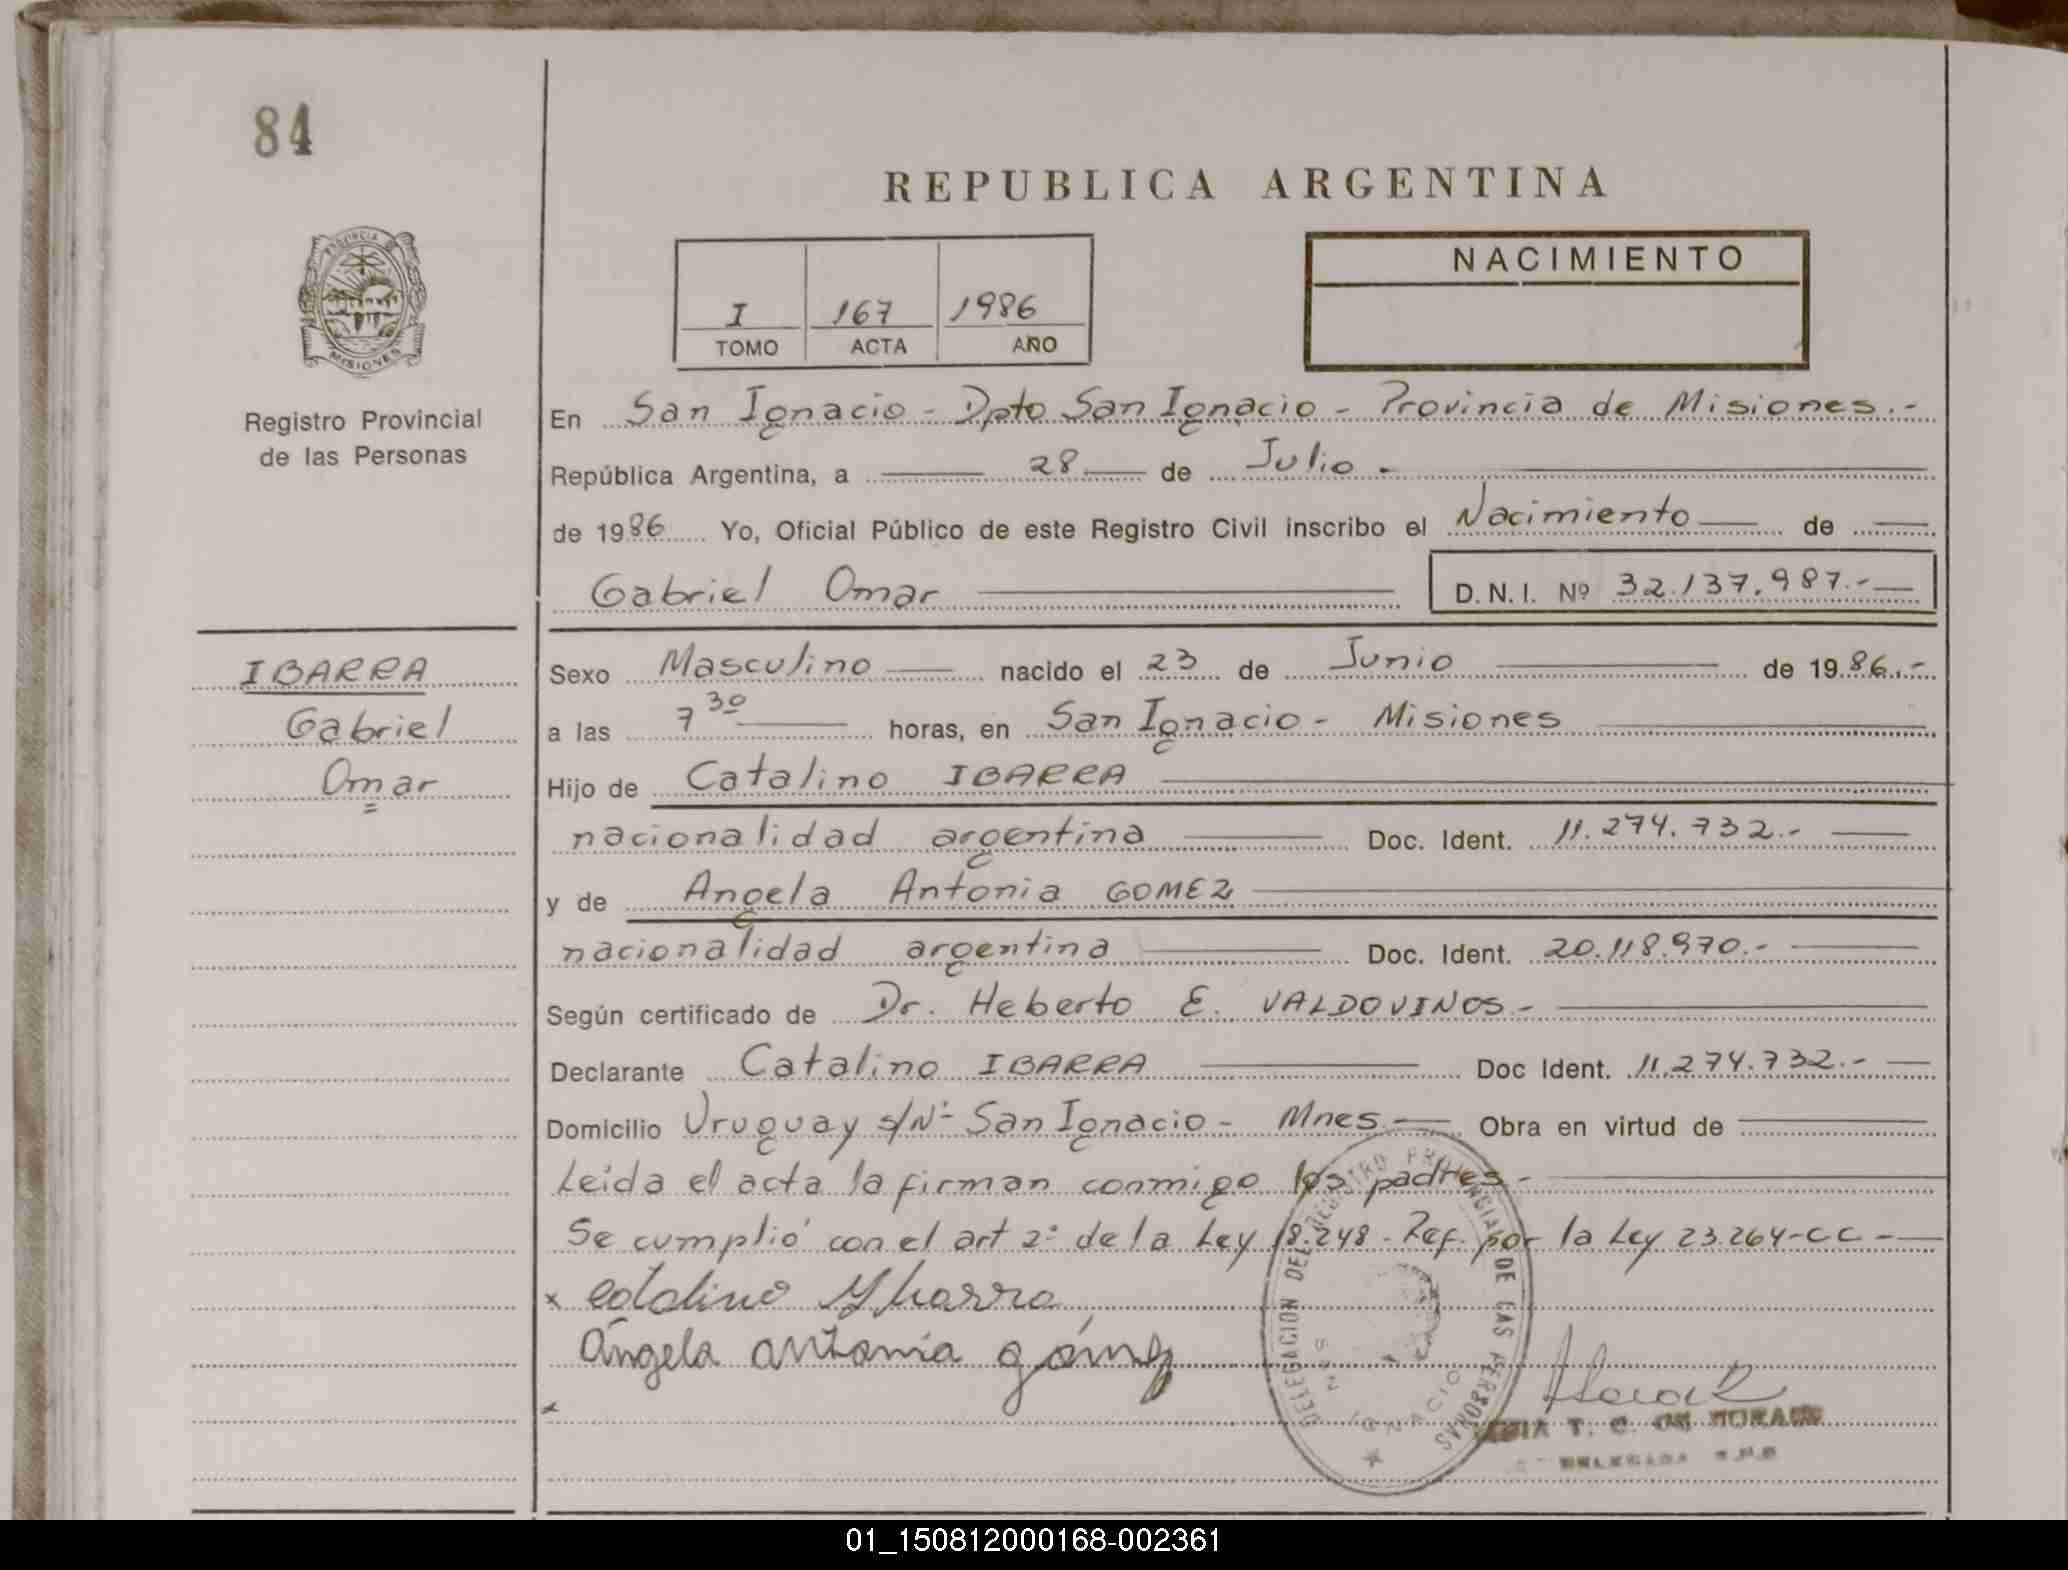 84
REPUBLICA ARGENTINA
PROVINCIA DE
MISIONES
Registro Provincial
de las Personas
NACIMIENTO
I 167 1986
TOMO ACTA AÑO
En San Ignacio - Dpto San Ignacio - Provincia de Misiones.-
República Argentina, a 28 de Julio.-
de 1986 Yo, Oficial Público de este Registro Civil inscribo el Nacimiento de
Gabriel Omar D.N.I. Nº 32.137.987.-
IBARRA
Gabriel
Omar
Sexo Masculino nacido el 23 de Junio de 1986.-
a las 7 30 horas, en San Ignacio - Misiones
Hijo de Catalino IBARRA
nacionalidad argentina Doc. Ident. 11.274.732.-
y de Angela Antonia GOMEZ
nacionalidad argentina Doc. Ident. 20.118.970.-
Según certificado de Dr. Heberto E. VALDOVINOS.-
Declarante Catalino IBARRA Doc Ident. 11.274.732.-
Domicilio Uruguay s/Nº San Ignacio - Mnes Obra en virtud de
Leida el acta la firman conmigo los padres.-
Se cumplió con el art 2º de la Ley 18.248 - Ref. por la Ley 23.264-CC-
x Catalino Ybarra
Angela antonia gómez
x
DELEGACION DEL REGISTRO PROVINCIAL DE LAS PERSONAS
SAN IGNACIO
T. C. DE MORA
DELEGADA
01_150812000168-002361